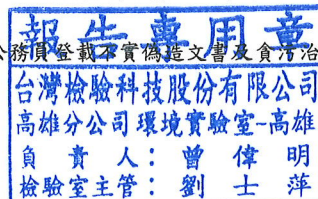 報告專用章
公務員登載不實偽造文書及貪污治
台灣檢驗科技股份有限公司
高雄分公司環境實驗室-高雄
負責人：曾偉明
檢驗室主管：劉士萍